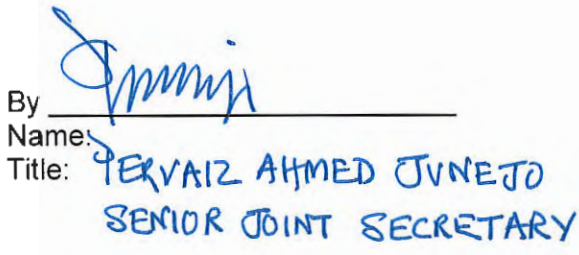 By
Name:
Title: PERVAIZ AHMED JUNEJO
SENIOR JOINT SECRETARY